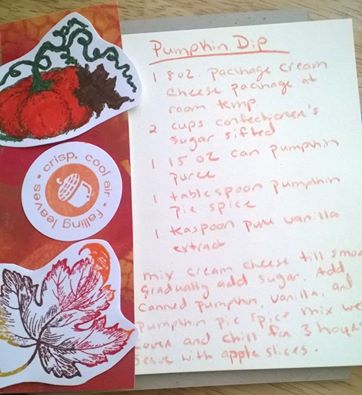 Pumpkin Dip
1 8oz. package cream
cheese package at
room temp
2 cups confectioner's
sugar sifted
1 15 oz can pumpkin
puree
1 tablespoon pumpkin
pie spice
1 teaspoon pure vanilla
extract
mix cream cheese till smoo
gradually add sugar. Add
canned pumpkin, vanilla, and
pumpkin pie spice mix we
cover and chill for 3 hours
Serve with apple slices.
crisp, cool air • Falling leaves •